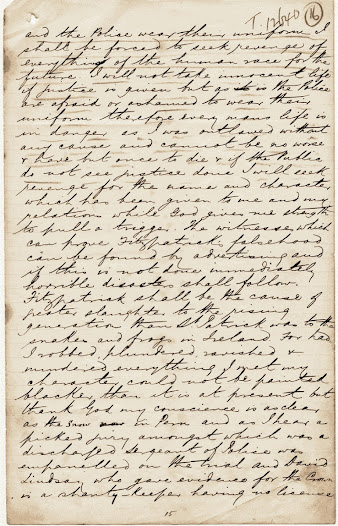 T. 12640 (16
and the Police wear their uniform I
shall be forced to seek revenge of
everything of the human race for the
future I will not take innocent life
if justice is given but as the Police
are afraid or ashamed to wear their
uniform therefore every mans life is
in danger as I was outlawed without
any cause and cannot be no worse
& have but once to die & if the Public
do not see justice done I will seek
revenge for the name and character
which has been given to me and my
relations while God gives me strength
to pull a trigger. The witness which
can prove Fitzpatricks falsehood
can be found by advertising and
if this is not done immediately
horrible disasters shall follow.
Fitzpatrick shall be the cause of
greater slaughter to the rising
generation than St Patrick was to the
snakes and frogs in Ireland For had
I robbed, plundered, ravished &
murdered everything I met my
character could not be painted
blacker than it is at present but
thank God my conscience is as clear
as the snow in Peru and as I hear a
picked jury amongst which was a
discharged Sergeant of Police was
empanelled on the trial and David
Lindsay who gave evidence for the Crown
is a shanty keeper having no licence
15